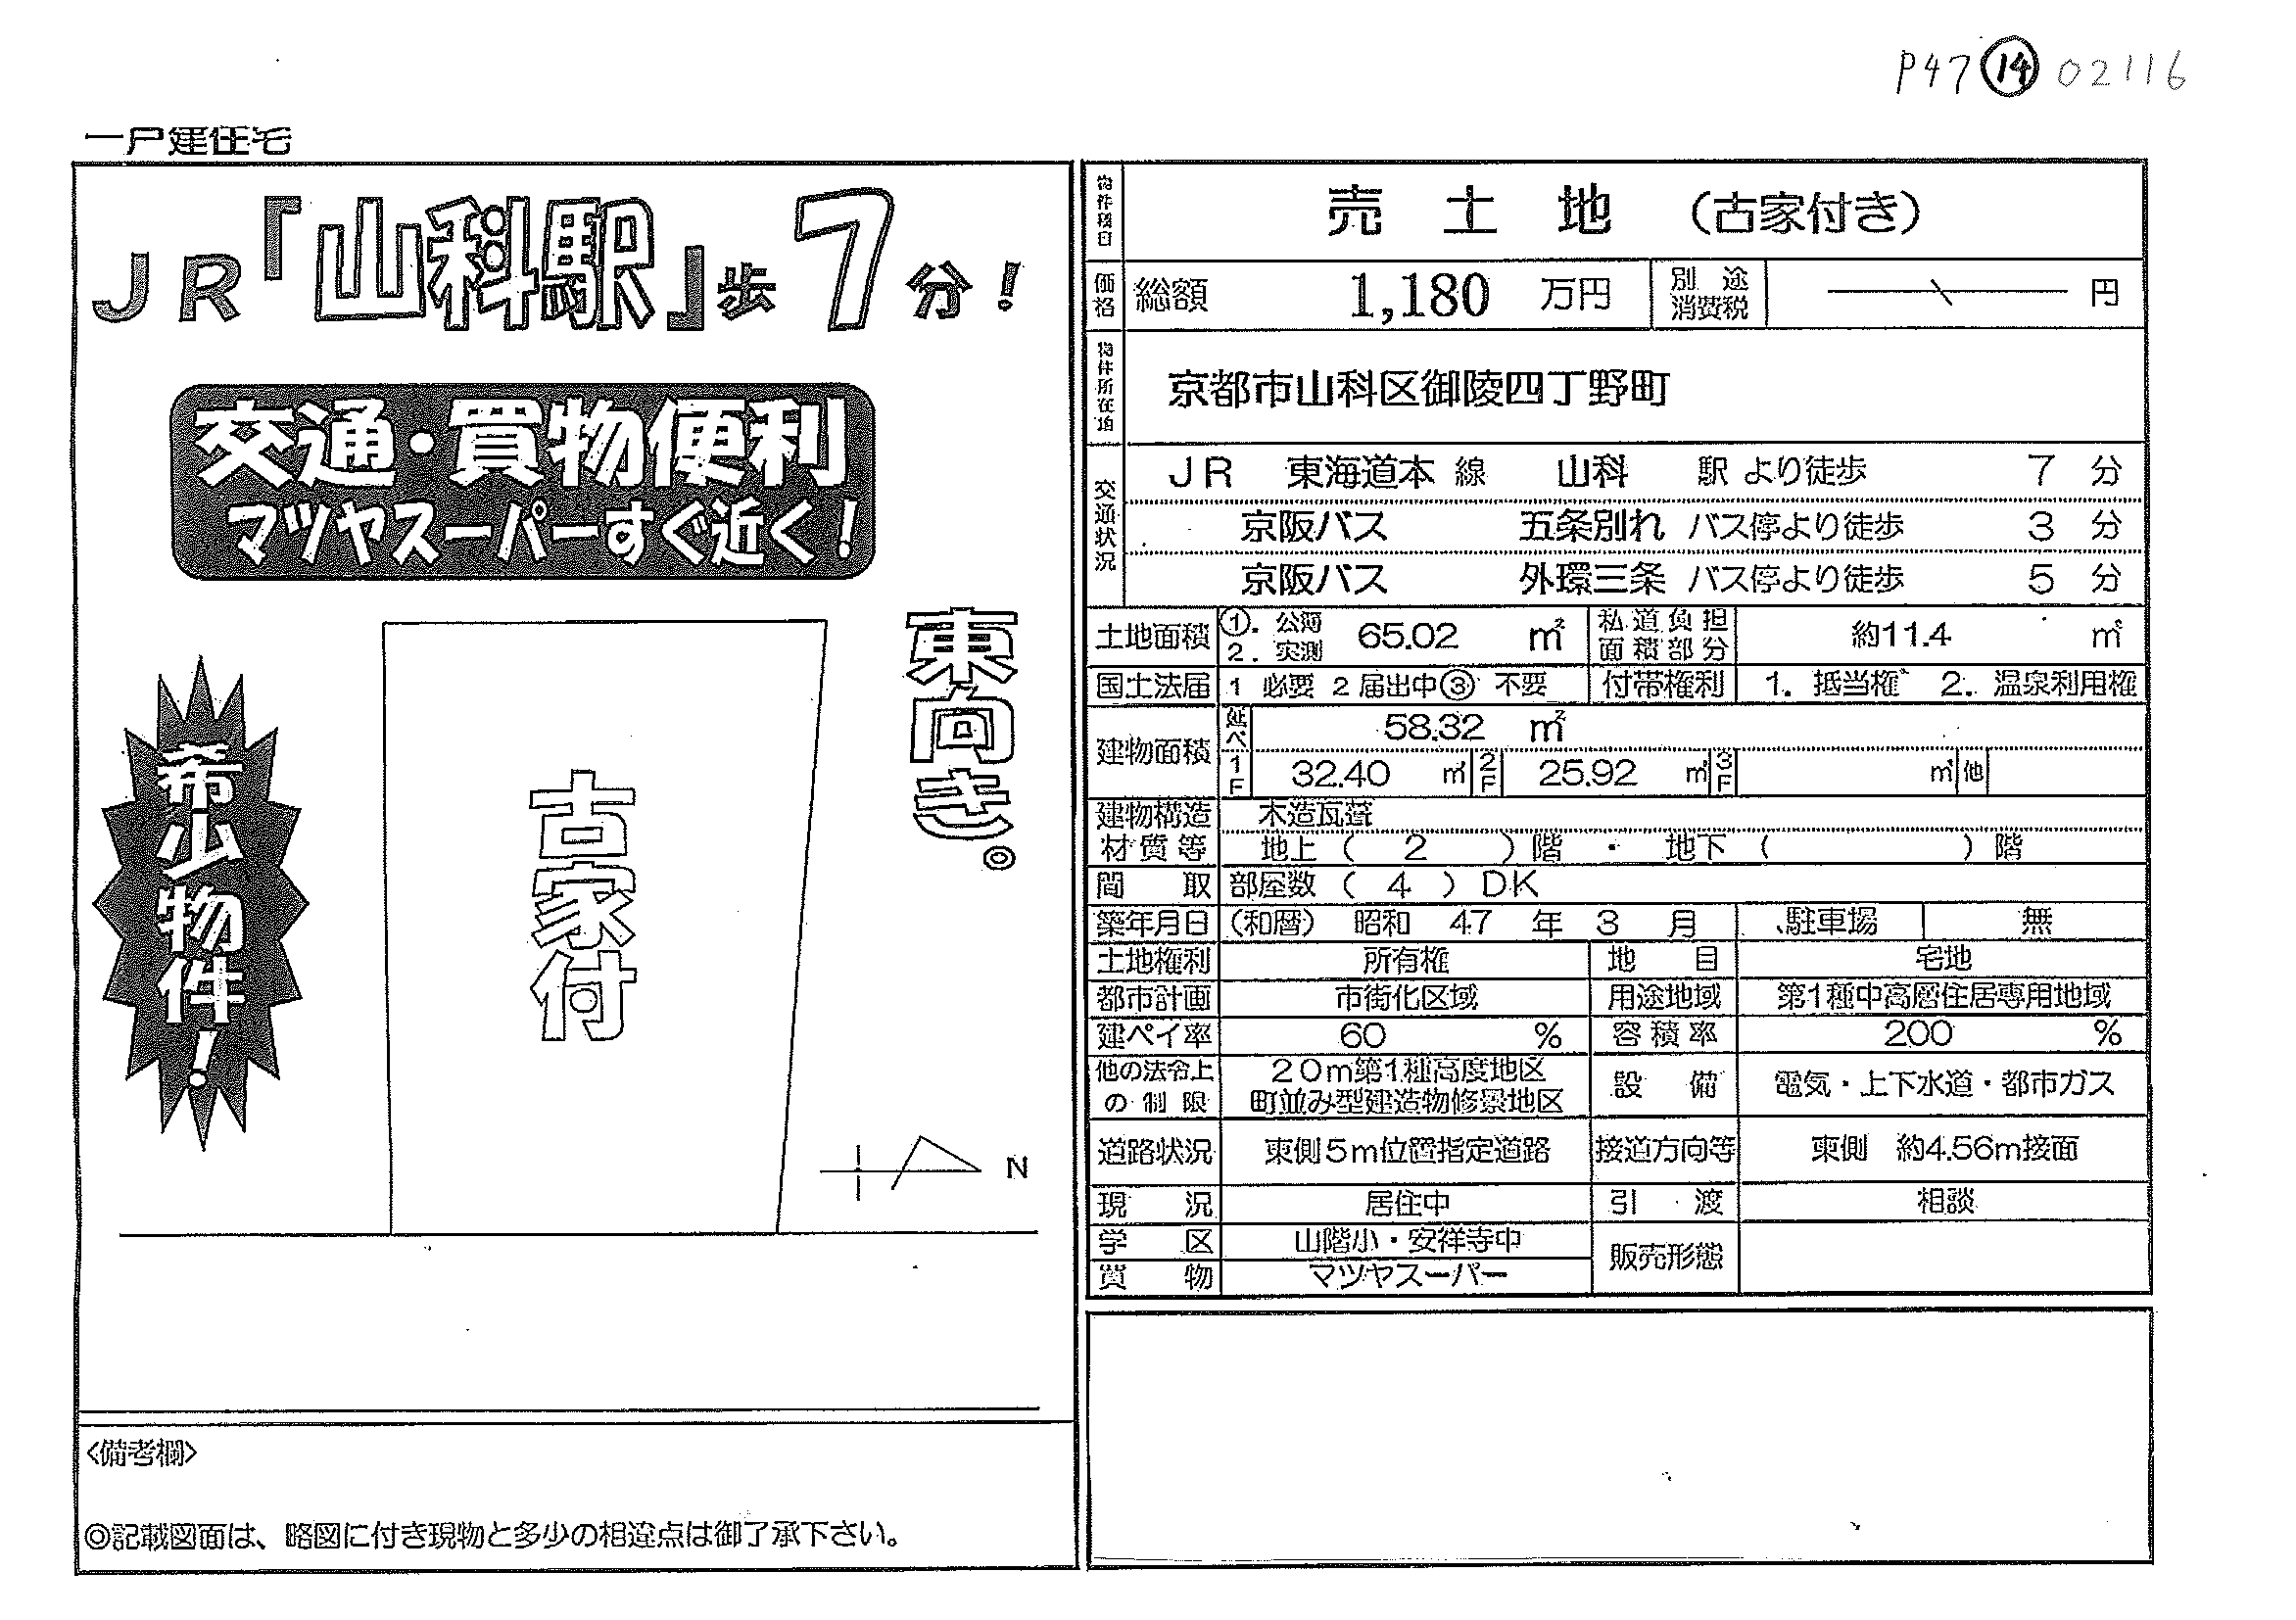 P47 ⑭ 02116
一戸建住宅
JR「山科駅」歩7分！
交通・買物便利
マツヤスーパーすぐ近く！
東向き。
希少物件！
古家付
N
<備考欄>
◎記載図面は、略図に付き現物と多少の相違点は御了承下さい。
物件種目 売土地 （古家付き）
価格 総額 1,180 万円 別途消費税 円
物件所在地 京都市山科区御陵四丁野町
交通状況 JR 東海道本 線 山科 駅 より徒歩 7 分
京阪バス 五条別れ バス停より徒歩 3 分
京阪バス 外環三条 バス停より徒歩 5 分
土地面積 ①. 公簿 2. 実測 65.02 ㎡ 私道負担面積部分 約11.4 ㎡
国土法届 1 必要 2 届出中 ③ 不要 付帯権利 1. 抵当権 2. 温泉利用権
建物面積 延べ 58.32 ㎡
1F 32.40 ㎡ 2F 25.92 ㎡ 3F ㎡ 他
建物構造 木造瓦葺
材質等 地上（ 2 ）階 ・ 地下（ ）階
間取 部屋数（ 4 ）DK
築年月日 （和暦） 昭和 47 年 3 月 駐車場 無
土地権利 所有権 地目 宅地
都市計画 市街化区域 用途地域 第1種中高層住居専用地域
建ペイ率 60 % 容積率 200 %
他の法令上の制限 20m第1種高度地区 町並み型建造物修景地区 設備 電気・上下水道・都市ガス
道路状況 東側5m位置指定道路 接道方向等 東側 約4.56m接面
現況 居住中 引渡 相談
学区 山階小・安祥寺中 販売形態
買物 マツヤスーパー